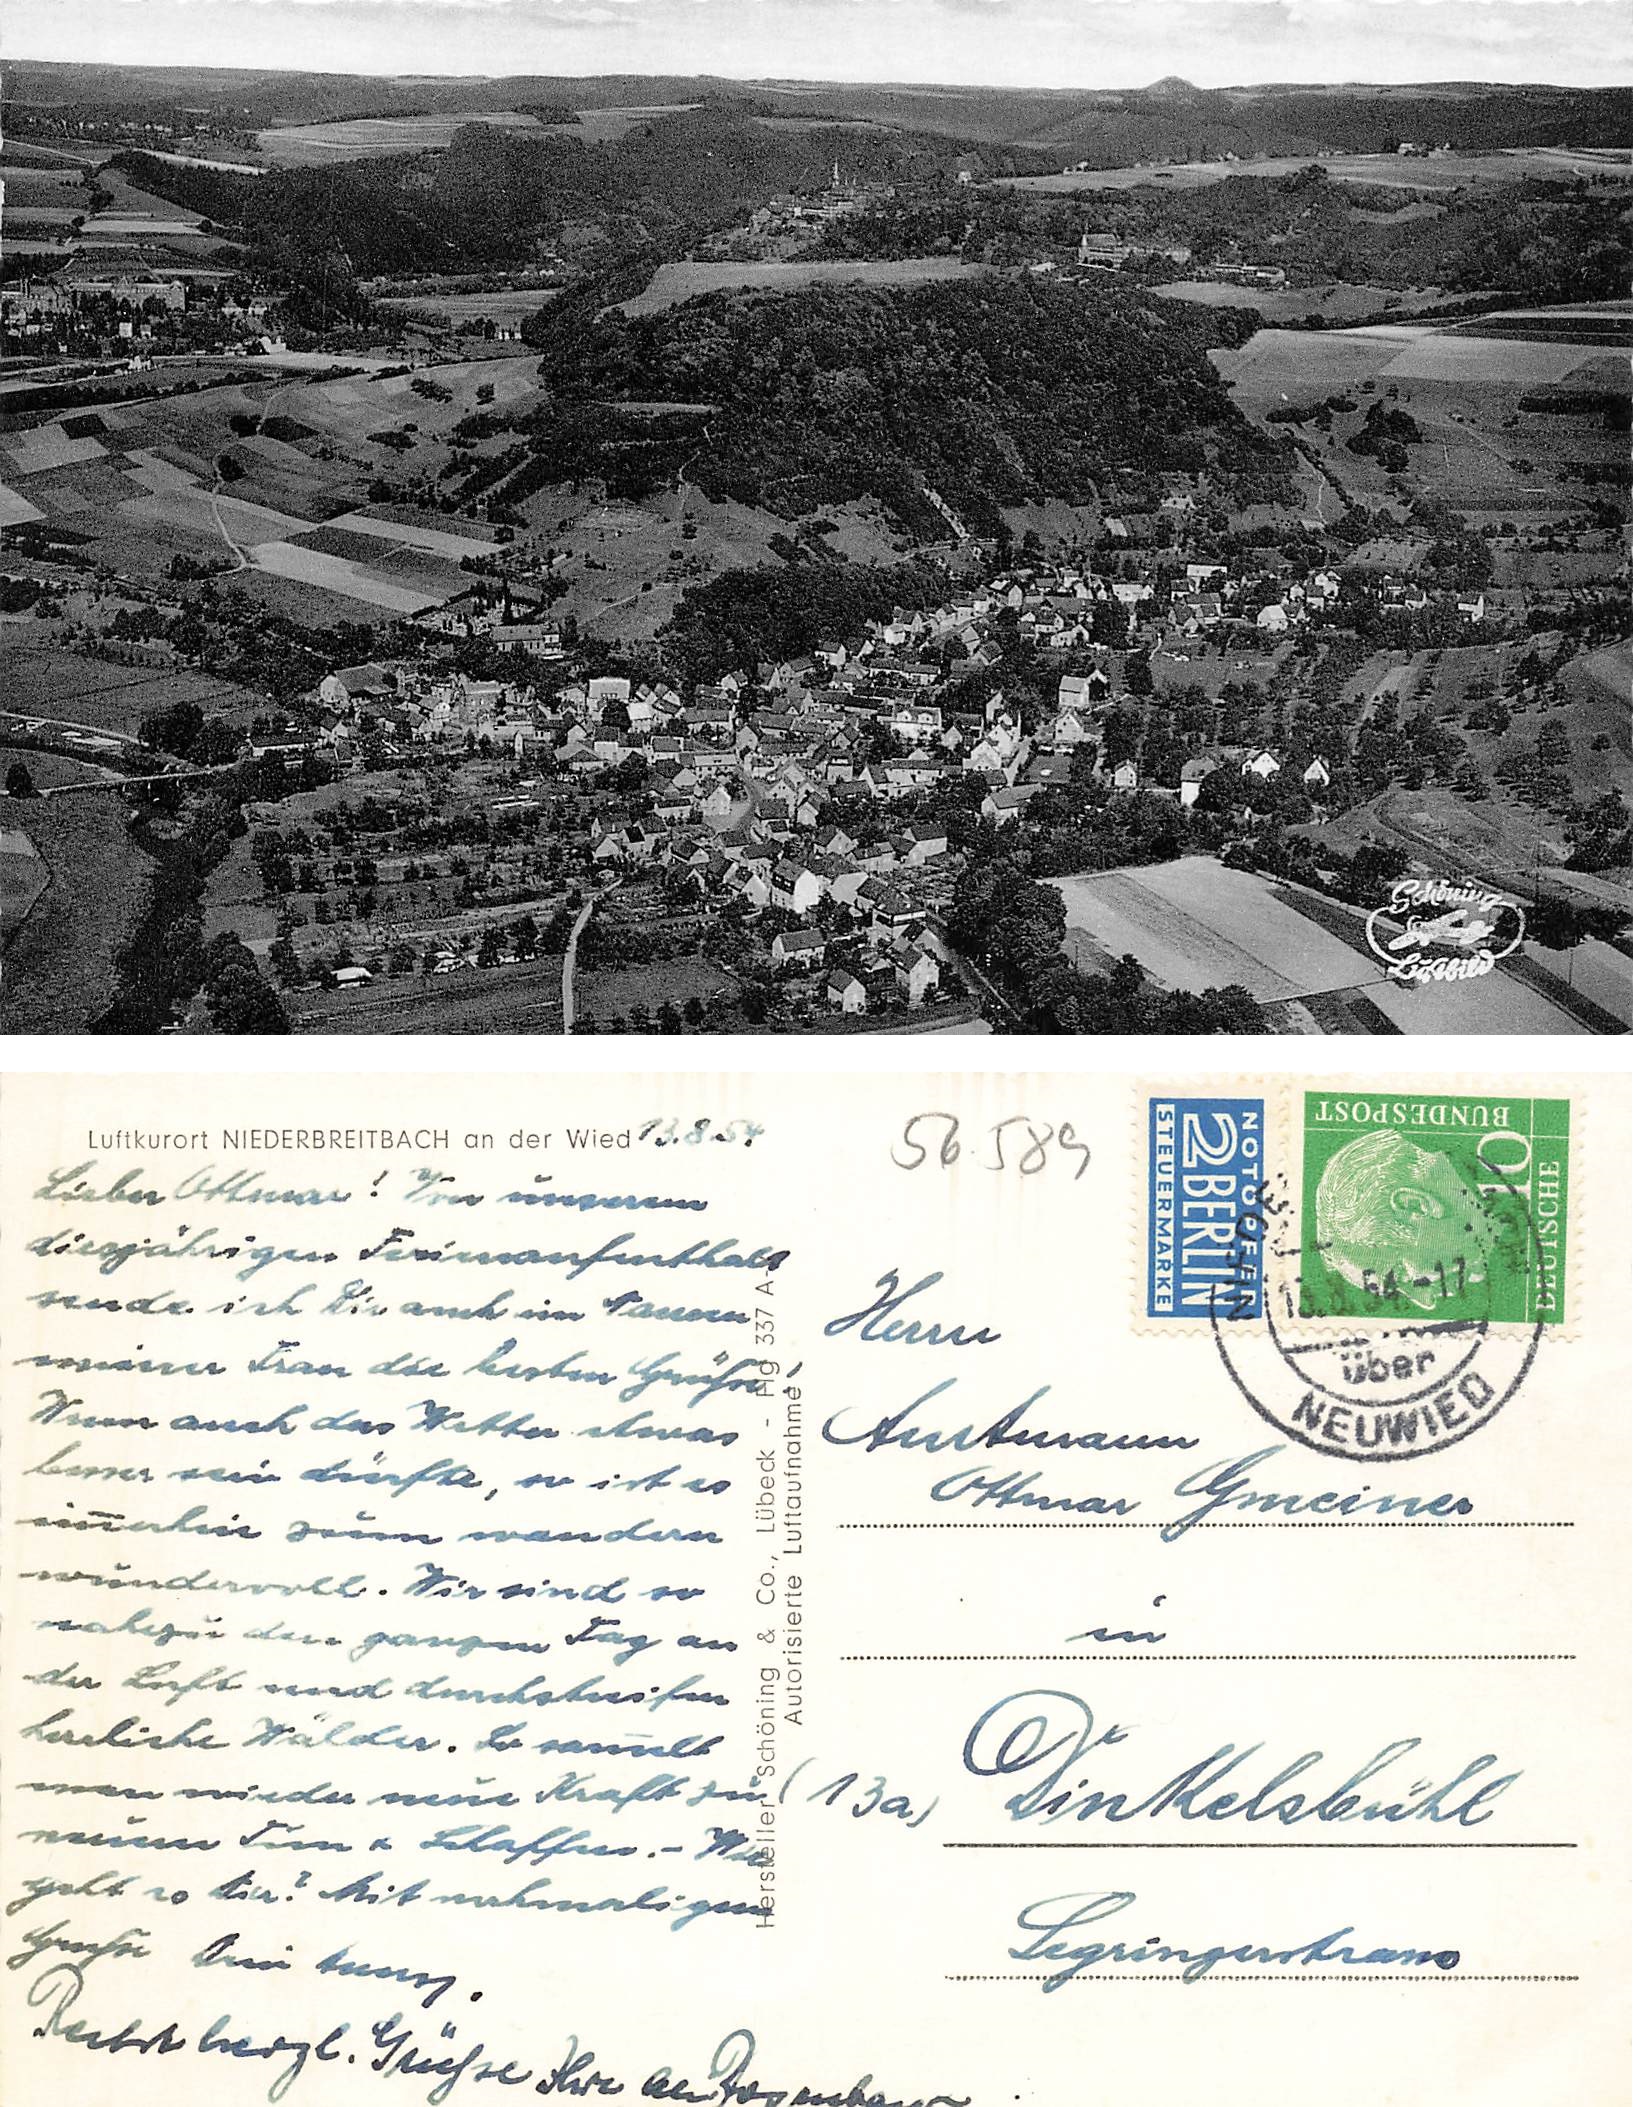 Schöning
Luftbild
Luftkurort NIEDERBREITBACH an der Wied 13.8.54
56.589
Lieber Ottmar! Von unserem
diesjährigen Ferienaufenthalt
sende ich Dir auch im Namen
meiner Frau die besten Grüße.
Wenn auch das Wetter etwas
besser sein dürfte, so ist es
immerhin zum wandern
wundervoll. Wir sind so
nahezu den ganzen Tag an
der Luft und durchstreifen
herrliche Wälder. So sammelt
man wieder neue Kraft zu
neuem Tun & Schaffen. – Wie
geht es Dir? Mit nochmaligen
Grüße Dein
herzl. Grüsse Ihre
Hersteller Schöning & Co., Lübeck - Hg 337 A-
Autorisierte Luftaufnahme
NOTOPFER
2 BERLIN
STEUERMARKE
10
DEUTSCHE
BUNDESPOST
13.8.54.-17
über
NEUWIED
Herrn
Amtmann
Ottmar Gmeiner
in
(13a) Dinkelsbühl
Segringerstrasse